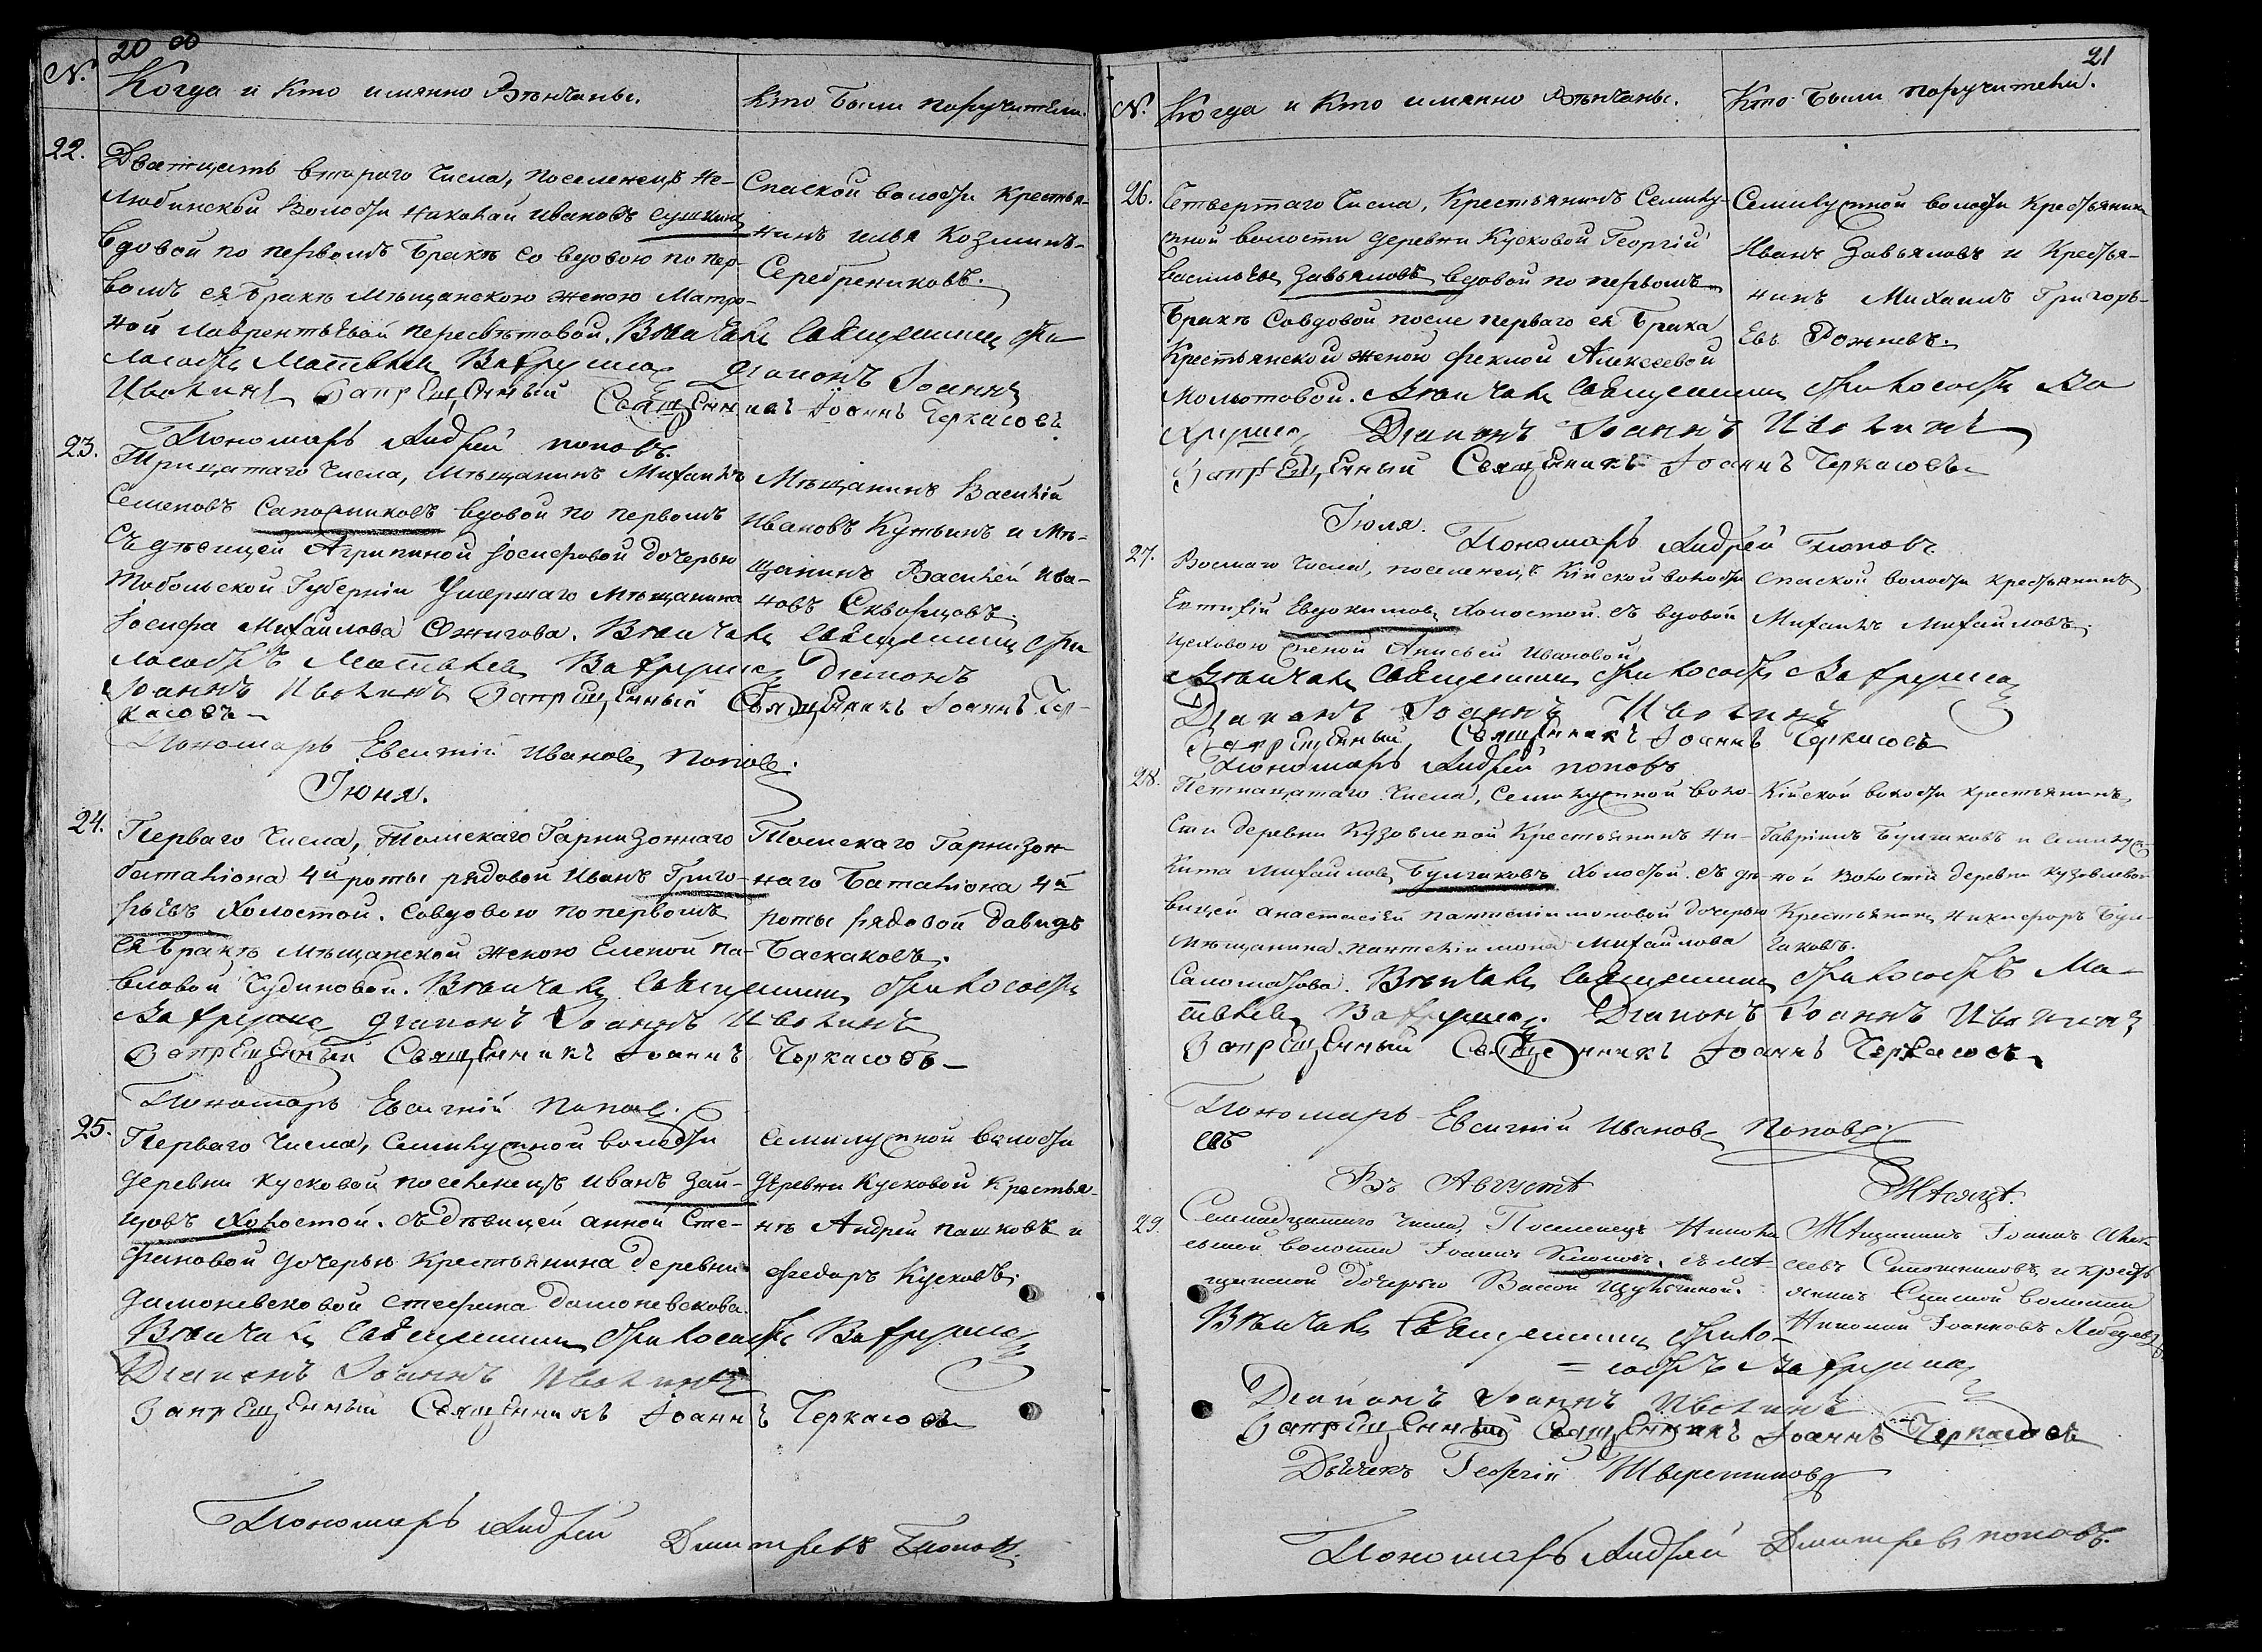 20 об
N. Когда и Кто имянно Вѣнчаны. Кто были поручители.
22. Дватцать втораго Числа, поселенецъ Не-
любинской Волости Николай Ивановъ
вдовой по первомъ бракѣ со вдовою по пер-
вомъ ея бракѣ мѣщанскою женою Матро-
ной Лаврентьевой Пересвѣтовой. Вѣнчалъ Священникъ Фи-
лософъ Матвѣевъ Вафрушевъ Діаконъ Іоаннъ
Иволинъ Запрещенный Священникъ Іоаннъ Черкасовъ
Пономарь Андрей Поповъ
Спаской волости Крестья-
нинъ Илья Козминъ
Серебрениковъ.
23. Трицатаго Числа, Мѣщанинъ Михаилъ
Семеновъ Сапожниковъ вдовой по первомъ
съ дѣвицей Агрипиной Іосифовой дочерью
Тобольской Губерніи Умершаго Мѣщанина
Іосифа Михайлова Ожигова. Вѣнчалъ Священникъ Фи
лософъ Матвѣевъ Вафрушевъ Діаконъ
Іоаннъ Иволинъ Запрещенный Священникъ Іоаннъ Чер-
касовъ
Пономарь Евсигній Ивановъ Поповъ.
Мѣщанинъ Василій
Ивановъ Кутьинъ и Мѣ-
щанинъ Василей Ива-
новъ Скворцовъ.
Іюня.
24. Перваго Числа, Томскаго Гарнизоннаго
баталіона 4й роты рядовой Иванъ Григо-
рьевъ Холостой. Совдовою попервомъ
ея бракѣ Мѣщанской женою Еленой Па-
вловой Чудиновой. Вѣнчалъ Священникъ Философъ
Вафрушевъ Діаконъ Іоаннъ Иволинъ
Запрещенный Священникъ Іоаннъ Черкасовъ
Пономарь Евсигній Поповъ.
Томскаго Гарнизон-
наго Баталіона 4й
роты рядовой Давидъ
Баскаковъ.
25. Перваго Числа, Семилужной волости
деревни Кусковой поселенецъ Иванъ Зай-
цовъ Холостой. съ дѣвицей Анной Сте-
фановой дочерью Крестьянина деревни
Стефана
Вѣнчалъ Священникъ Философъ Вафрушевъ
Діаконъ Іоаннъ Иволинъ
Запрещенный Священникъ Іоаннъ Черкасовъ
Пономарь Андрей Дмитревъ Поповъ.
Семилужной волости
деревни Кусковой Крестья-
нѣ Андрей Пашковъ и
Федоръ Кусковъ.
21
N. Когда и Кто имянно Вѣнчаны. Кто были поручители.
26. Четвертаго Числа, Крестьянинъ Семилу-
жной волости деревни Кусковой Георгій
Васильевъ Завьяловъ вдовой по первомъ
бракѣ Совдовой после перваго ея брака
Крестьянской женой Феклой Алексеевой
Молотовой. Вѣнчалъ Священникъ Философъ Ва
фрушевъ Діаконъ Іоаннъ Иволинъ
Запрещенный Священникъ Іоаннъ Черкасовъ
Пономарь Андрей Поповъ
Семилужной волости Крестьянинъ
Иванъ Завьяловъ и Крестья-
нинъ Михаилъ Григорь-
евъ Рожневъ.
Іюля.
27. Восмаго Числа, поселенецъ Кійской волости
Евтифій Евдокимовъ Холостой. съ вдовой
женой Анисьей Ивановой
Вѣнчалъ Священникъ Философъ Вафрушевъ
Діаконъ Іоаннъ Иволинъ
Запрещенный Священникъ Іоаннъ Черкасовъ
Пономарь Андрей Поповъ
Спаской волости крестьянинъ
Михаилъ Михайловъ.
28. Петнацатаго Числа, Семилужной воло-
сти деревни Кузовлевой Крестьянинъ Ни-
кита Михайловъ Булгаковъ Холостой. съ дѣ-
вицей Анастасіей Пантелеимоновой дочерью
Мѣщанина Пантелеимона Михайлова
Вѣнчалъ Священникъ Философъ Ма-
твѣевъ Вафрушевъ. Діаконъ Іоаннъ Иволинъ
Запрещенный Священникъ Іоаннъ Черкасовъ
Пономарь Евсигній Ивановъ Поповъ.
Кійской волости крестьянинъ
Гавріилъ Булгаковъ и Семилуж-
ной волости деревни Кузовлевой
Крестьянинъ Никифоръ Бул-
гаковъ.
Въ Августѣ Мѣсяцѣ.
29. Семнадцатаго Числа, Поселенецъ
волости Іоаннъ Климовъ. съ мѣ-
щанской дочерью Вассой
Вѣнчалъ Священникъ Фило-
= софъ Вафрушевъ
Діаконъ Іоаннъ Иволинъ
Запрещенный Священникъ Іоаннъ Черкасовъ
Дьячекъ Георгій Тверитиновъ
Пономарь Андрей Дмитревъ Поповъ.
Мѣщанинъ Іоаннъ Алек-
сеевъ и крестья
янинъ Спаской волости
Николай Іоанновъ Лебедевъ